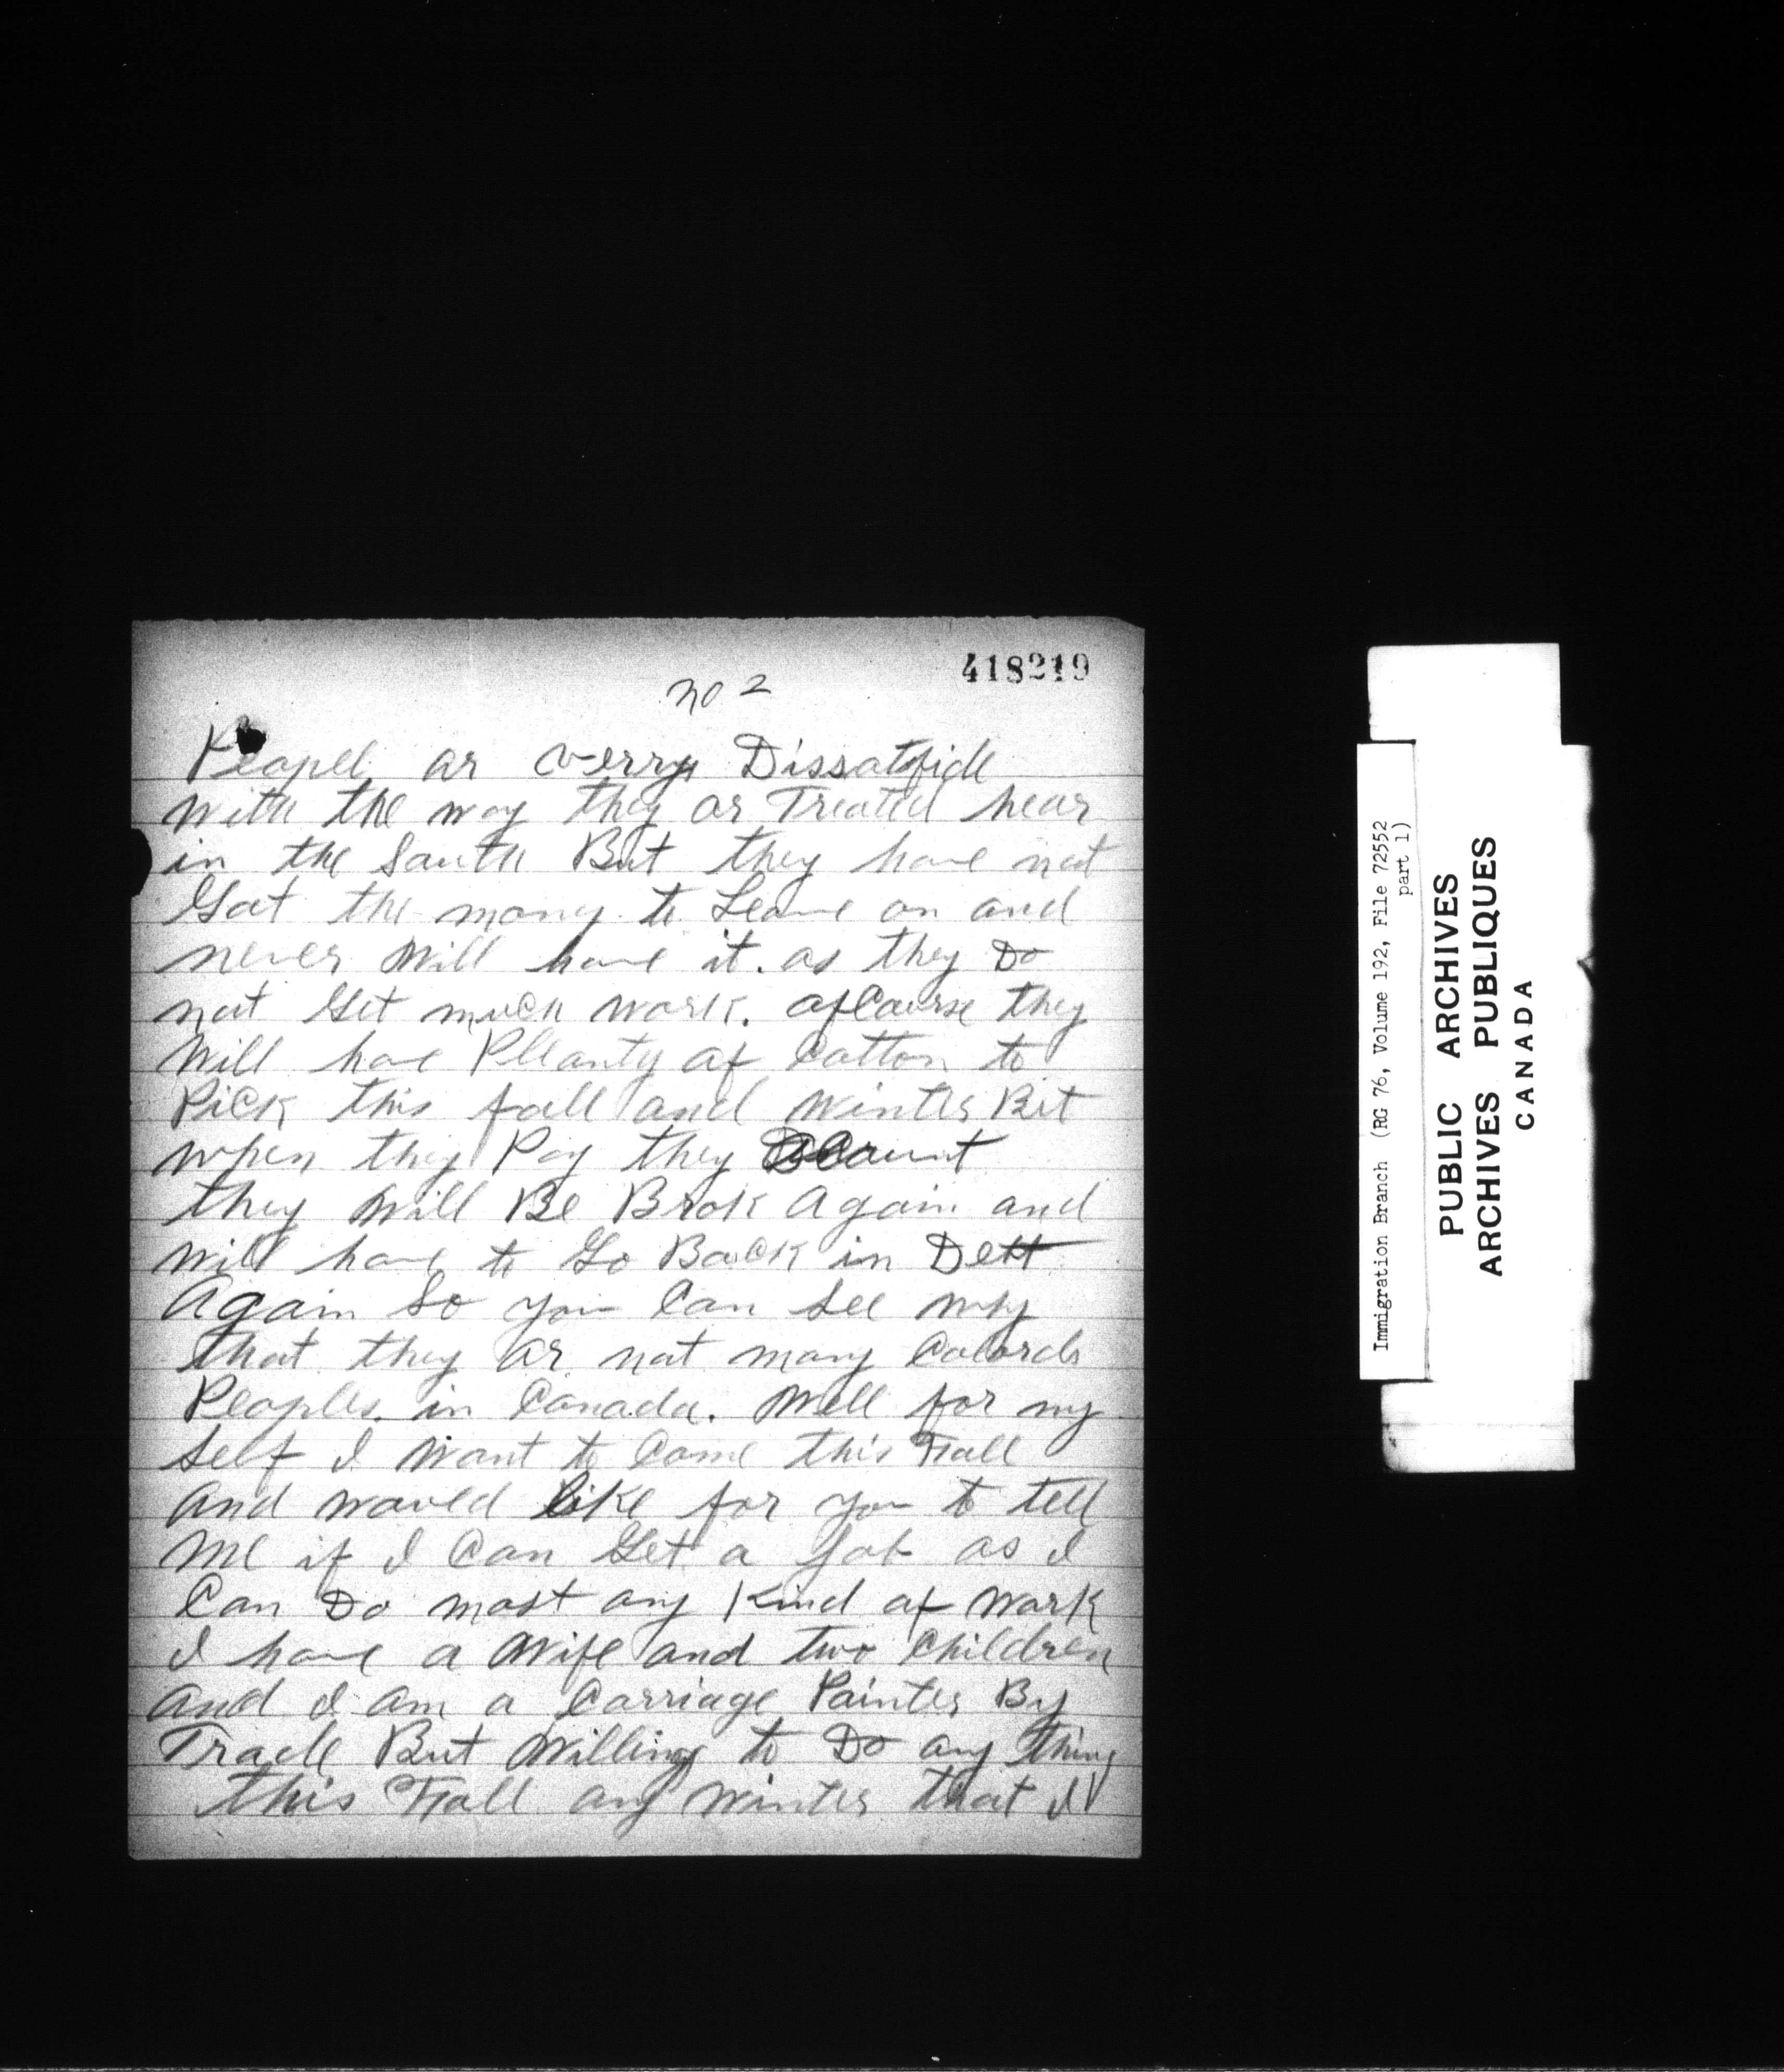 418219
no 2
Peapel ar verry Dissatsfide
with the way they ar Treated hear
in the South But they have not
Got the mony to Leave on and
never Will have it. as they Do
not Get much work. of Course they
Will have Pllanty of Cotton to
Pick this fall and Winter But
when they Pay they account
they Will Be Brok Again and
Will have to Go Back in Dett
Again So you Can See why
that they ar not many Colords
Peoples. in Canada. Well for my
Self I Want to Come this Fall
And would like for you to tell
Me if I Can Get a Job as I
Can Do most any Kind of Work
I have a Wife and two Children
and I am a Carriage Painter By
Trade But Willing to Do any thing
this Fall any Winter that I
Immigration Branch (RG 76, Volume 192, File 72552
part 1)
PUBLIC ARCHIVES
ARCHIVES PUBLIQUES
CANADA